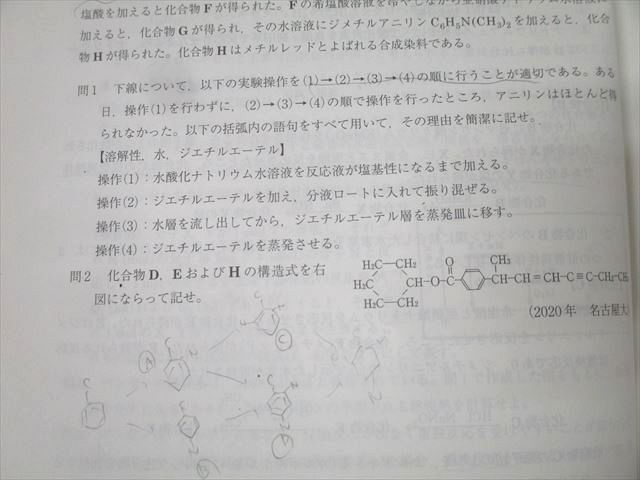 塩酸を加えると化合物Fが得られた。Fの希塩酸溶液を冷やしながら亜硝酸ナトリウム水溶液に
加えると，化合物Gが得られ，その水溶液にジメチルアニリン C₆H₅N(CH₃)₂ を加えると，化合
物Hが得られた。化合物Hはメチルレッドとよばれる合成染料である。
問1 下線について，以下の実験操作を(1)→(2)→(3)→(4)の順に行うことが適切である。ある
日，操作(1)を行わずに，(2)→(3)→(4)の順で操作を行ったところ，アニリンはほとんど得
られなかった。以下の括弧内の語句をすべて用いて，その理由を簡潔に記せ。
【溶解性，水，ジエチルエーテル】
操作(1)：水酸化ナトリウム水溶液を反応液が塩基性になるまで加える。
操作(2)：ジエチルエーテルを加え，分液ロートに入れて振り混ぜる。
操作(3)：水層を流し出してから，ジエチルエーテル層を蒸発皿に移す。
操作(4)：ジエチルエーテルを蒸発させる。
問2 化合物D，EおよびHの構造式を右
図にならって記せ。
H₂C－CH₂ O CH₃
H₂C CH－O－C CH－CH＝CH－C≡C－CH₂－CH
H₂C－CH₂
(2020年 名古屋大